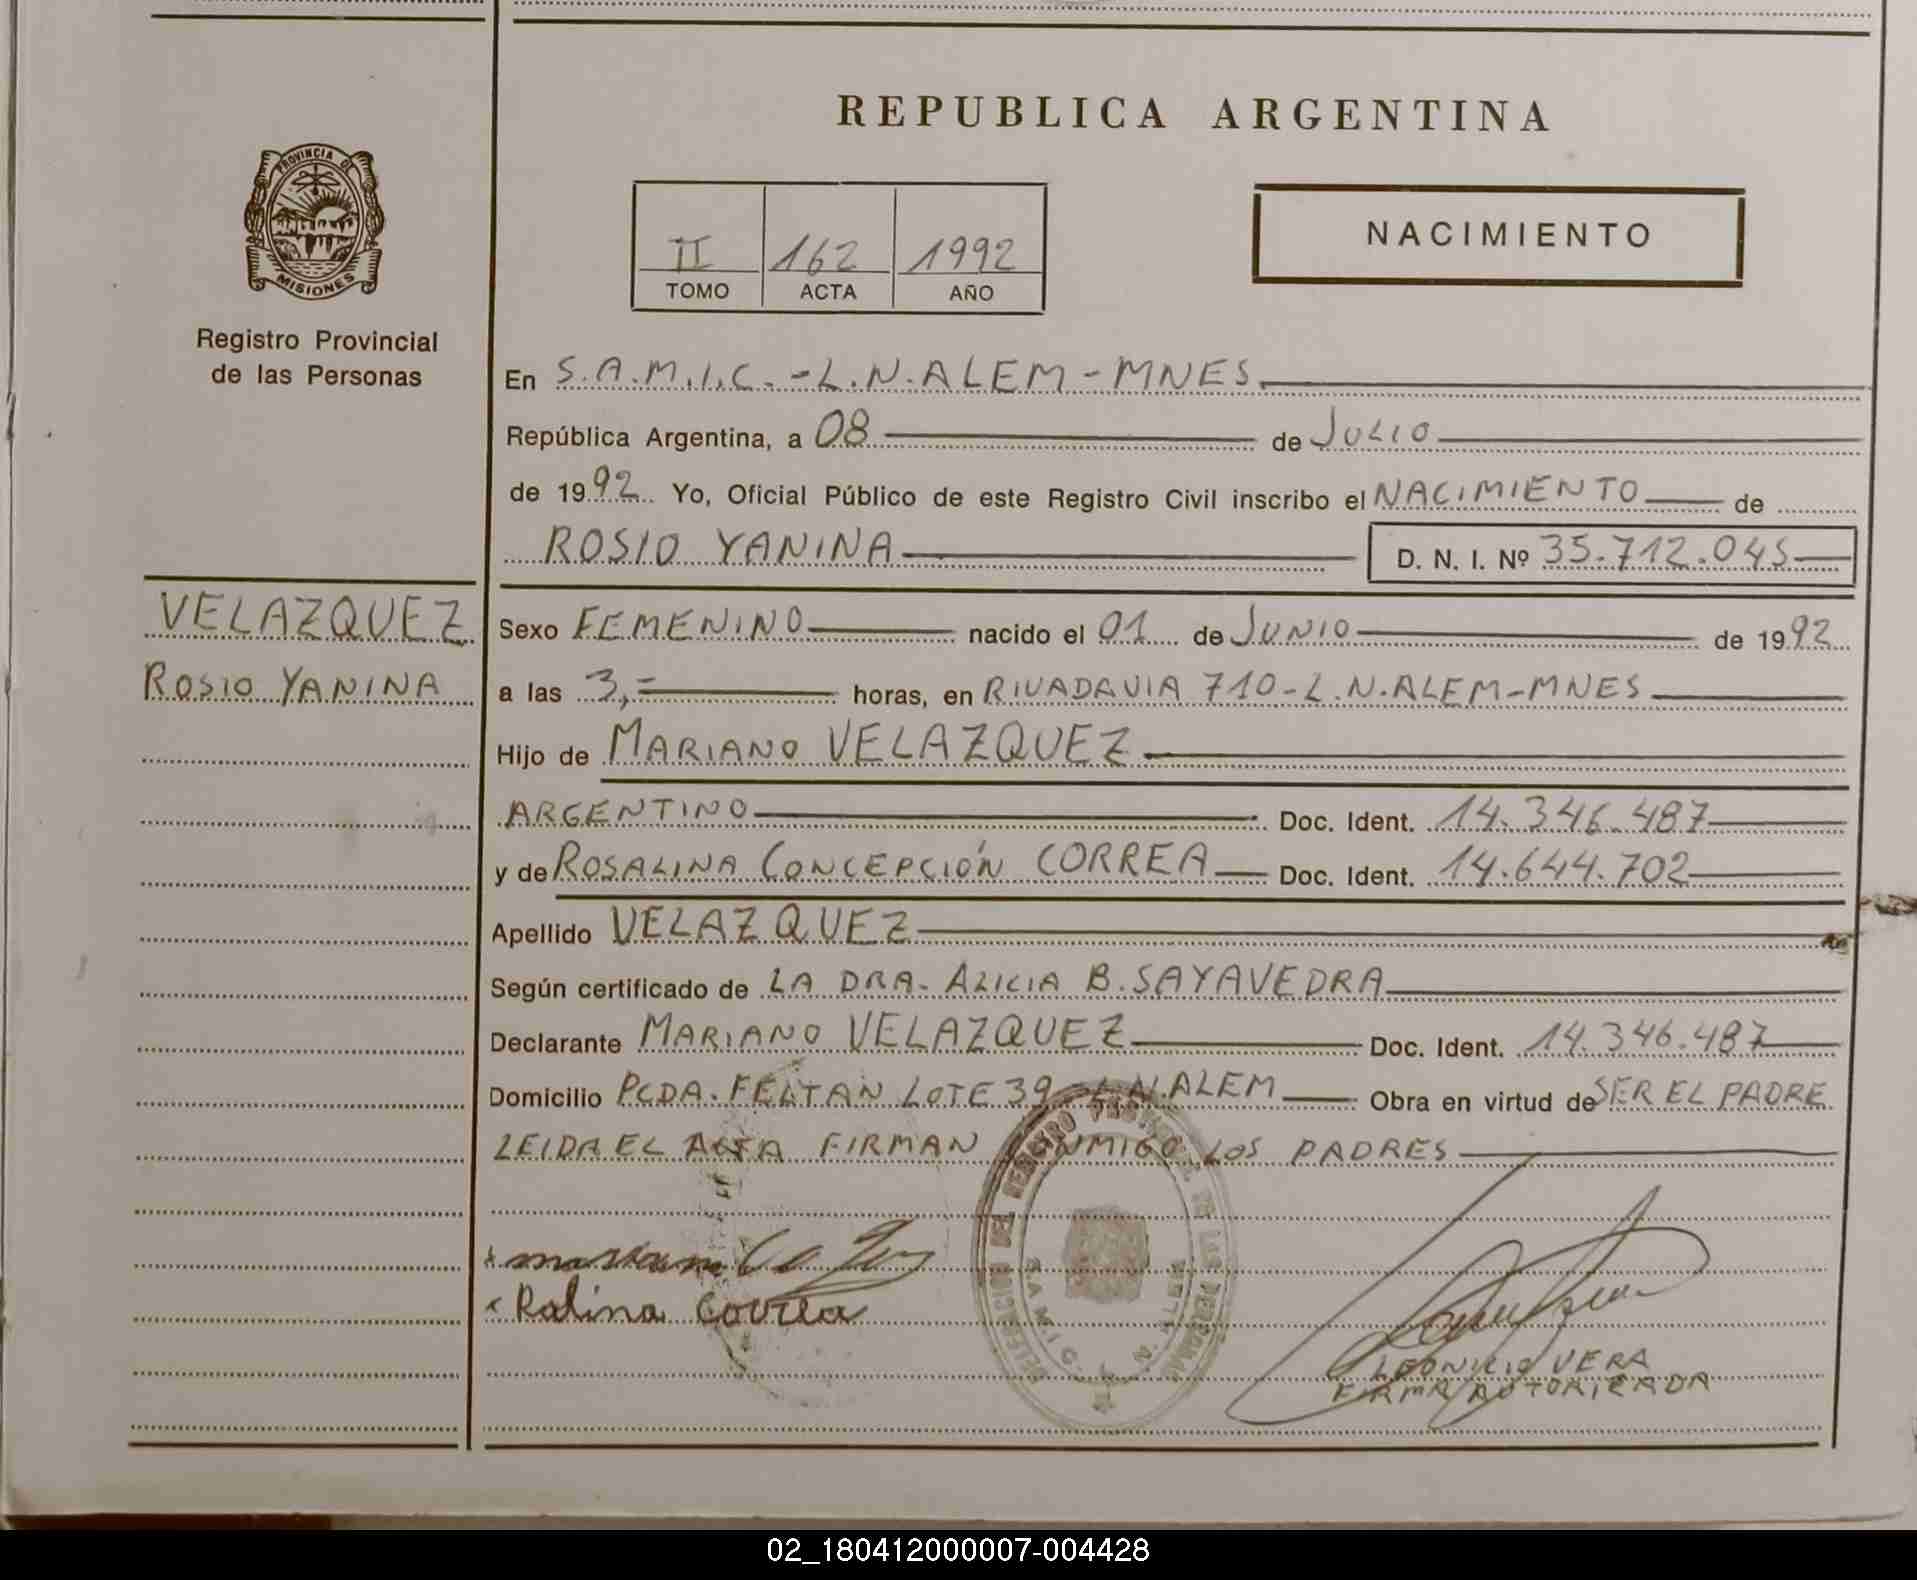 REPUBLICA ARGENTINA
PROVINCIA DE
MISIONES
Registro Provincial
de las Personas
II 162 1992
TOMO ACTA AÑO
NACIMIENTO
En S.A.M.I.C.-L.N.ALEM-MNES
República Argentina, a 08 de JULIO
de 1992 Yo, Oficial Público de este Registro Civil inscribo el NACIMIENTO de
ROSIO YANINA D. N. I. Nº 35.712.045
VELAZQUEZ
ROSIO YANINA
Sexo FEMENINO nacido el 01 de JUNIO de 1992
a las 3,= horas, en RIVADAVIA 710-L.N.ALEM-MNES
Hijo de MARIANO VELAZQUEZ
ARGENTINO Doc. Ident. 14.346.487
y de ROSALINA CONCEPCIÓN CORREA Doc. Ident. 14.644.702
Apellido VELAZQUEZ
Según certificado de LA DRA. ALICIA B. SAYAVEDRA
Declarante MARIANO VELAZQUEZ Doc. Ident. 14.346.487
Domicilio PCDA. FELTAN LOTE 39-L.N.ALEM Obra en virtud de SER EL PADRE
LEIDA EL ACTA FIRMAN CONMIGO LOS PADRES
Ralina Correa
LEONICIO VERA
FIRMA AUTORIZADA
02_180412000007-004428